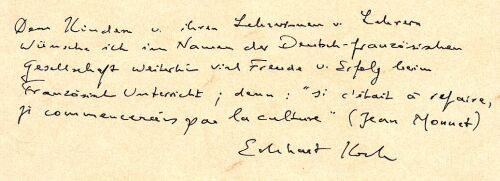 Den Kindern u. ihren Lehrerinnen u. Lehrern
wünsche ich im Namen der Deutsch-französischen
Gesellschaft weiterhin viel Freude u. Erfolg beim
Französisch Unterricht; denn: "si c'était à refaire,
je commencerais par la culture" (Jean Monnet)
Eckhart Koch